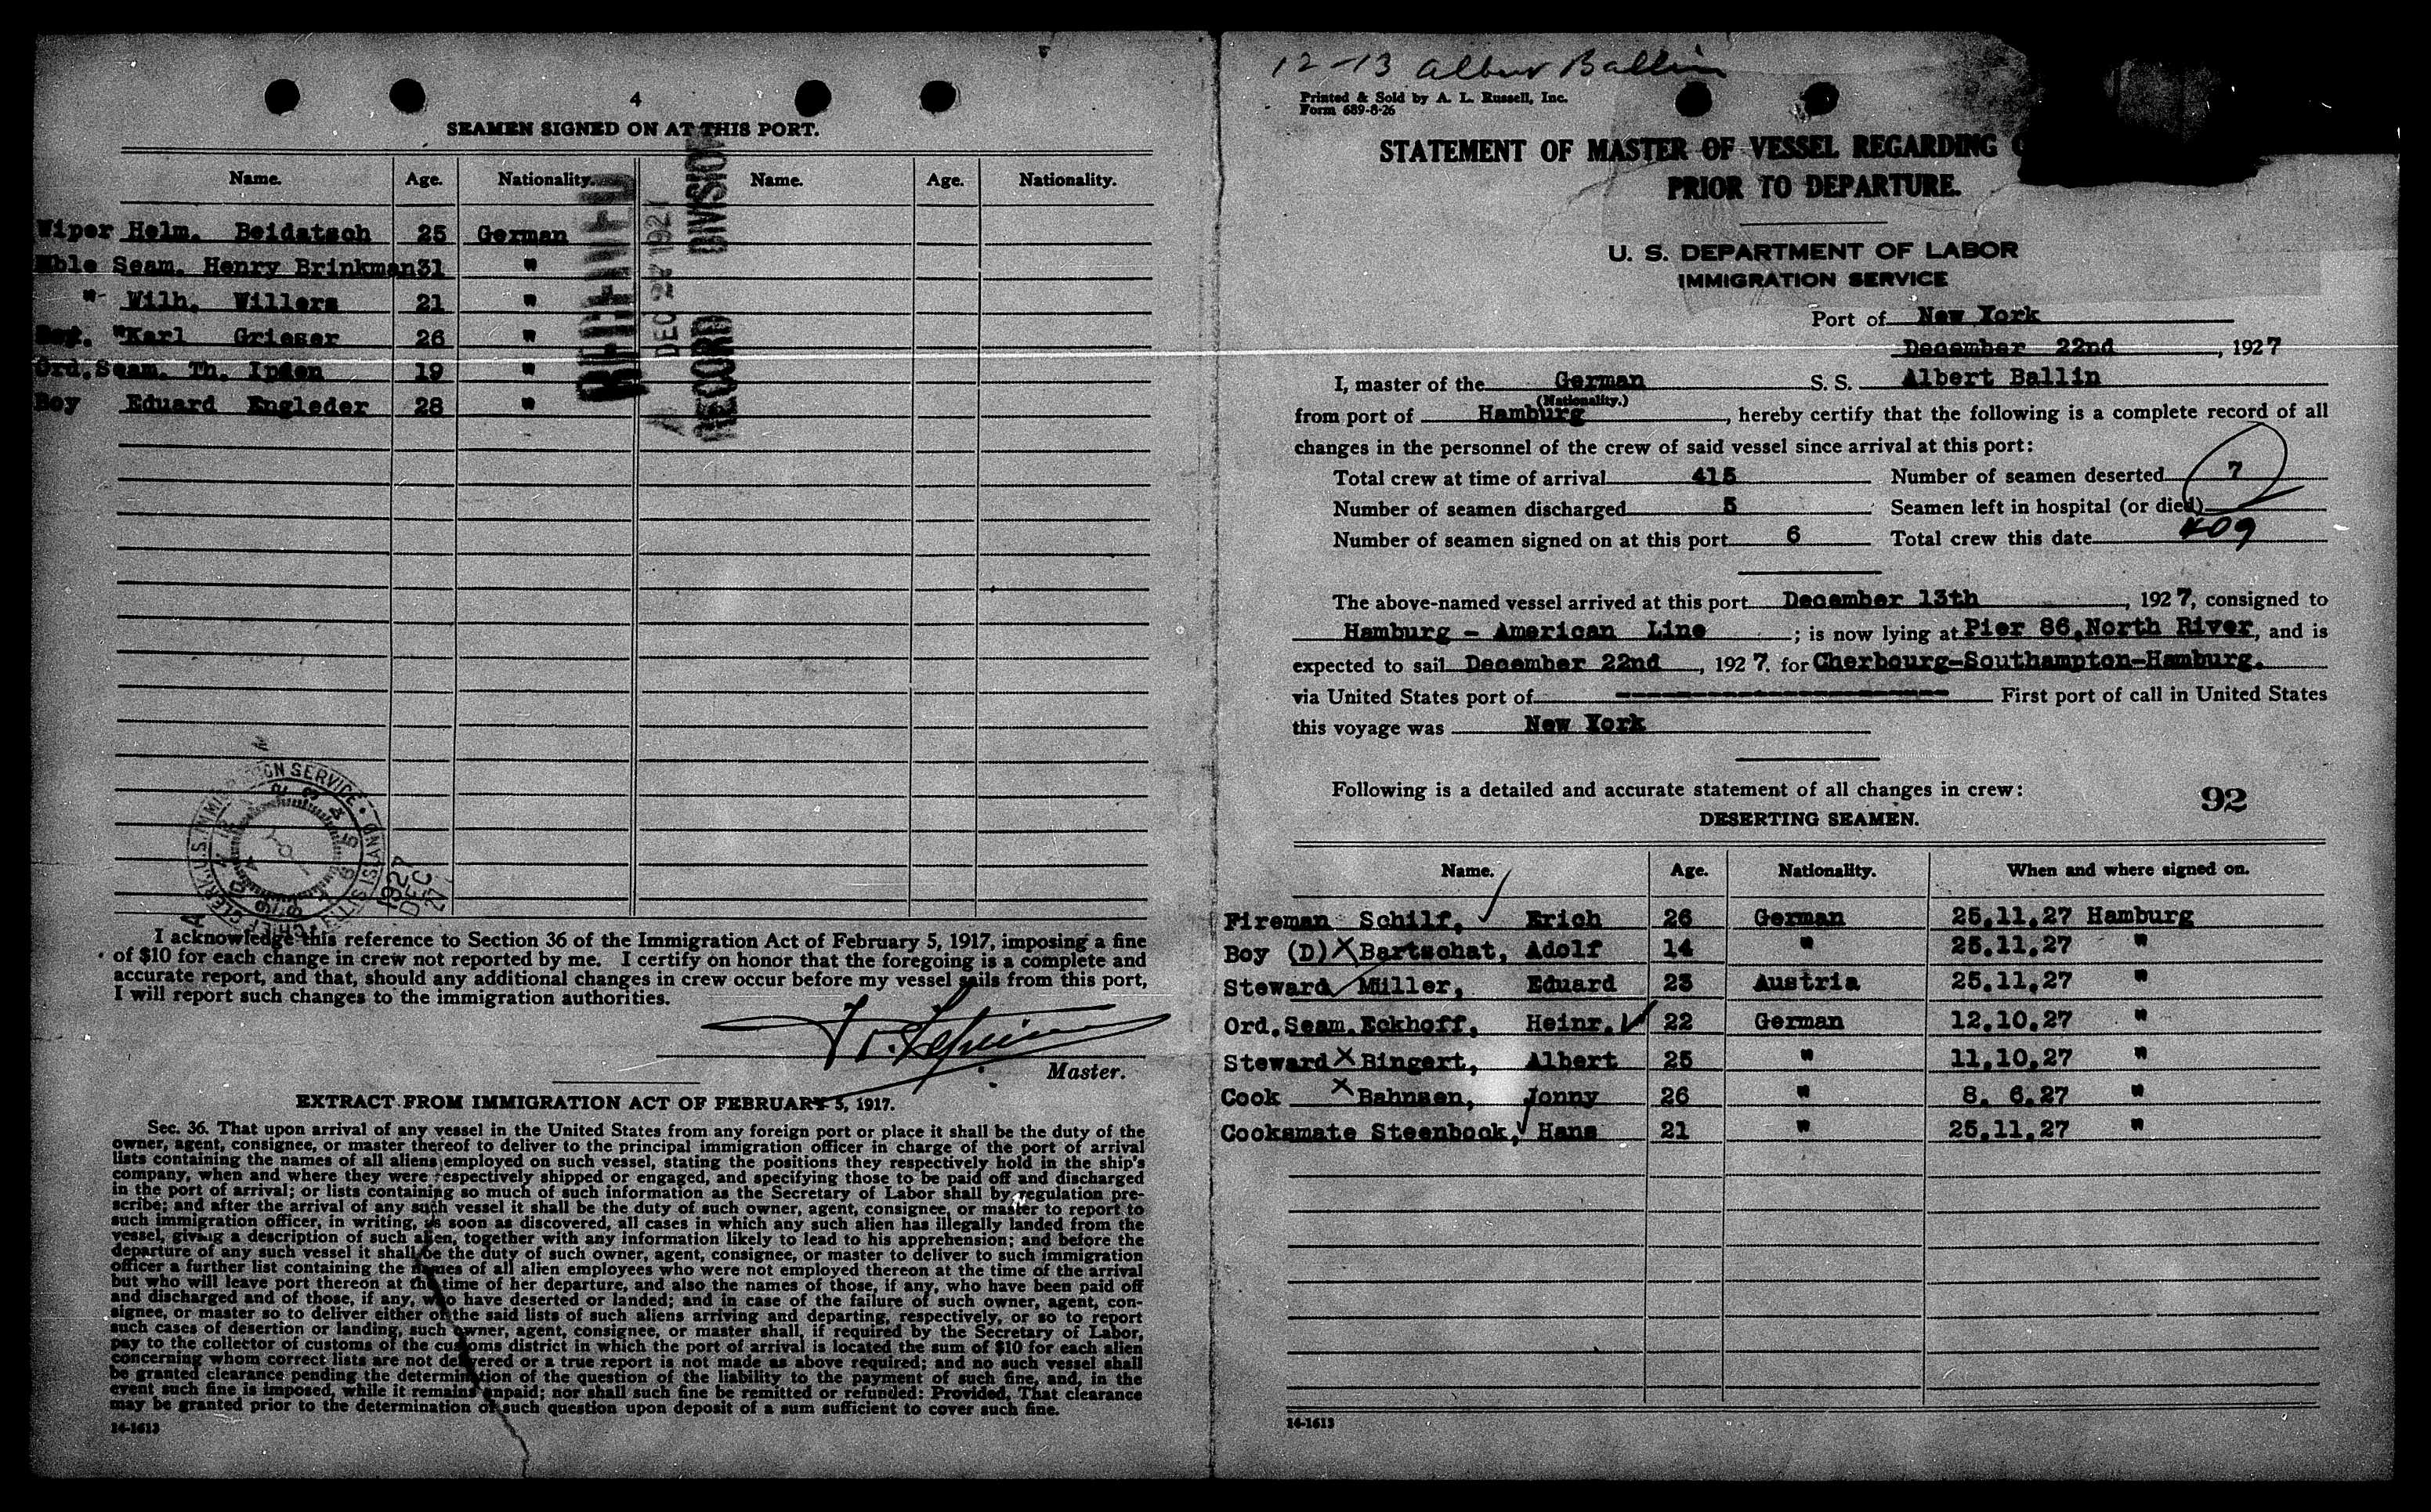 4
SEAMEN SIGNED ON AT THIS PORT.
Name. Age. Nationality. Name. Age. Nationality.
Wiper Helm. Beidatsch 25 German
Able Seam. Henry Brinkman 31 "
" Wilh. Willers 21 "
" Karl Grieser 26 "
Ord. Seam. Th. Ipsen 19 "
Boy Eduard Engleder 28 "
DEC 27 1927
RECORD DIVISION
U.S. IMMIGRATION SERVICE • ELLIS ISLAND
1927
DEC
27
I acknowledge this reference to Section 36 of the Immigration Act of February 5, 1917, imposing a fine
of $10 for each change in crew not reported by me. I certify on honor that the foregoing is a complete and
accurate report, and that, should any additional changes in crew occur before my vessel sails from this port,
I will report such changes to the immigration authorities.
Master.
EXTRACT FROM IMMIGRATION ACT OF FEBRUARY 5, 1917.
Sec. 36. That upon arrival of any vessel in the United States from any foreign port or place it shall be the duty of the
owner, agent, consignee, or master thereof to deliver to the principal immigration officer in charge of the port of arrival
lists containing the names of all aliens employed on such vessel, stating the positions they respectively hold in the ship's
company, when and where they were respectively shipped or engaged, and specifying those to be paid off and discharged
in the port of arrival; or lists containing so much of such information as the Secretary of Labor shall by regulation pre-
scribe; and after the arrival of any such vessel it shall be the duty of such owner, agent, consignee, or master to report to
such immigration officer, in writing, as soon as discovered, all cases in which any such alien has illegally landed from the
vessel, giving a description of such alien, together with any information likely to lead to his apprehension; and before the
departure of any such vessel it shall be the duty of such owner, agent, consignee, or master to deliver to such immigration
officer a further list containing the names of all alien employees who were not employed thereon at the time of the arrival
but who will leave port thereon at the time of her departure, and also the names of those, if any, who have been paid off
and discharged and of those, if any, who have deserted or landed; and in case of the failure of such owner, agent, con-
signee, or master so to deliver either of the said lists of such aliens arriving and departing, respectively, or so to report
such cases of desertion or landing, such owner, agent, consignee, or master shall, if required by the Secretary of Labor,
pay to the collector of customs of the customs district in which the port of arrival is located the sum of $10 for each alien
concerning whom correct lists are not delivered or a true report is not made as above required; and no such vessel shall
be granted clearance pending the determination of the question of the liability to the payment of such fine, and, in the
event such fine is imposed, while it remains unpaid; nor shall such fine be remitted or refunded: Provided, That clearance
may be granted prior to the determination of such question upon deposit of a sum sufficient to cover such fine.
14-1613
12-13 Albert Ballin
Printed & Sold by A. L. Russell, Inc.
Form 689-8-26
STATEMENT OF MASTER OF VESSEL REGARDING
PRIOR TO DEPARTURE.
U. S. DEPARTMENT OF LABOR
IMMIGRATION SERVICE
Port of New York
December 22nd, 1927
I, master of the German S. S. Albert Ballin
(Nationality.)
from port of Hamburg, hereby certify that the following is a complete record of all
changes in the personnel of the crew of said vessel since arrival at this port:
Total crew at time of arrival 415 Number of seamen deserted 7
Number of seamen discharged 5 Seamen left in hospital (or died)
Number of seamen signed on at this port 6 Total crew this date 409
The above-named vessel arrived at this port December 13th, 1927, consigned to
Hamburg - American Line; is now lying at Pier 86, North River, and is
expected to sail December 22nd, 1927. for Cherbourg-Southampton-Hamburg.
via United States port of ---------- First port of call in United States
this voyage was New York
Following is a detailed and accurate statement of all changes in crew:
92
DESERTING SEAMEN.
Name. Age. Nationality. When and where signed on.
Fireman Schilf, Erich 26 German 25.11.27 Hamburg
Boy (D) X Bartschat, Adolf 14 " 25.11.27 "
Steward Müller, Eduard 23 Austria 25.11.27 "
Ord. Seam. Eckhoff, Heinr. 22 German 12.10.27 "
Steward X Bingert, Albert 25 " 11.10.27 "
Cook X Bahnsen, Jonny 26 " 8. 6.27 "
Cooksmate Steenbock, Hans 21 " 25.11.27 "
14-1613